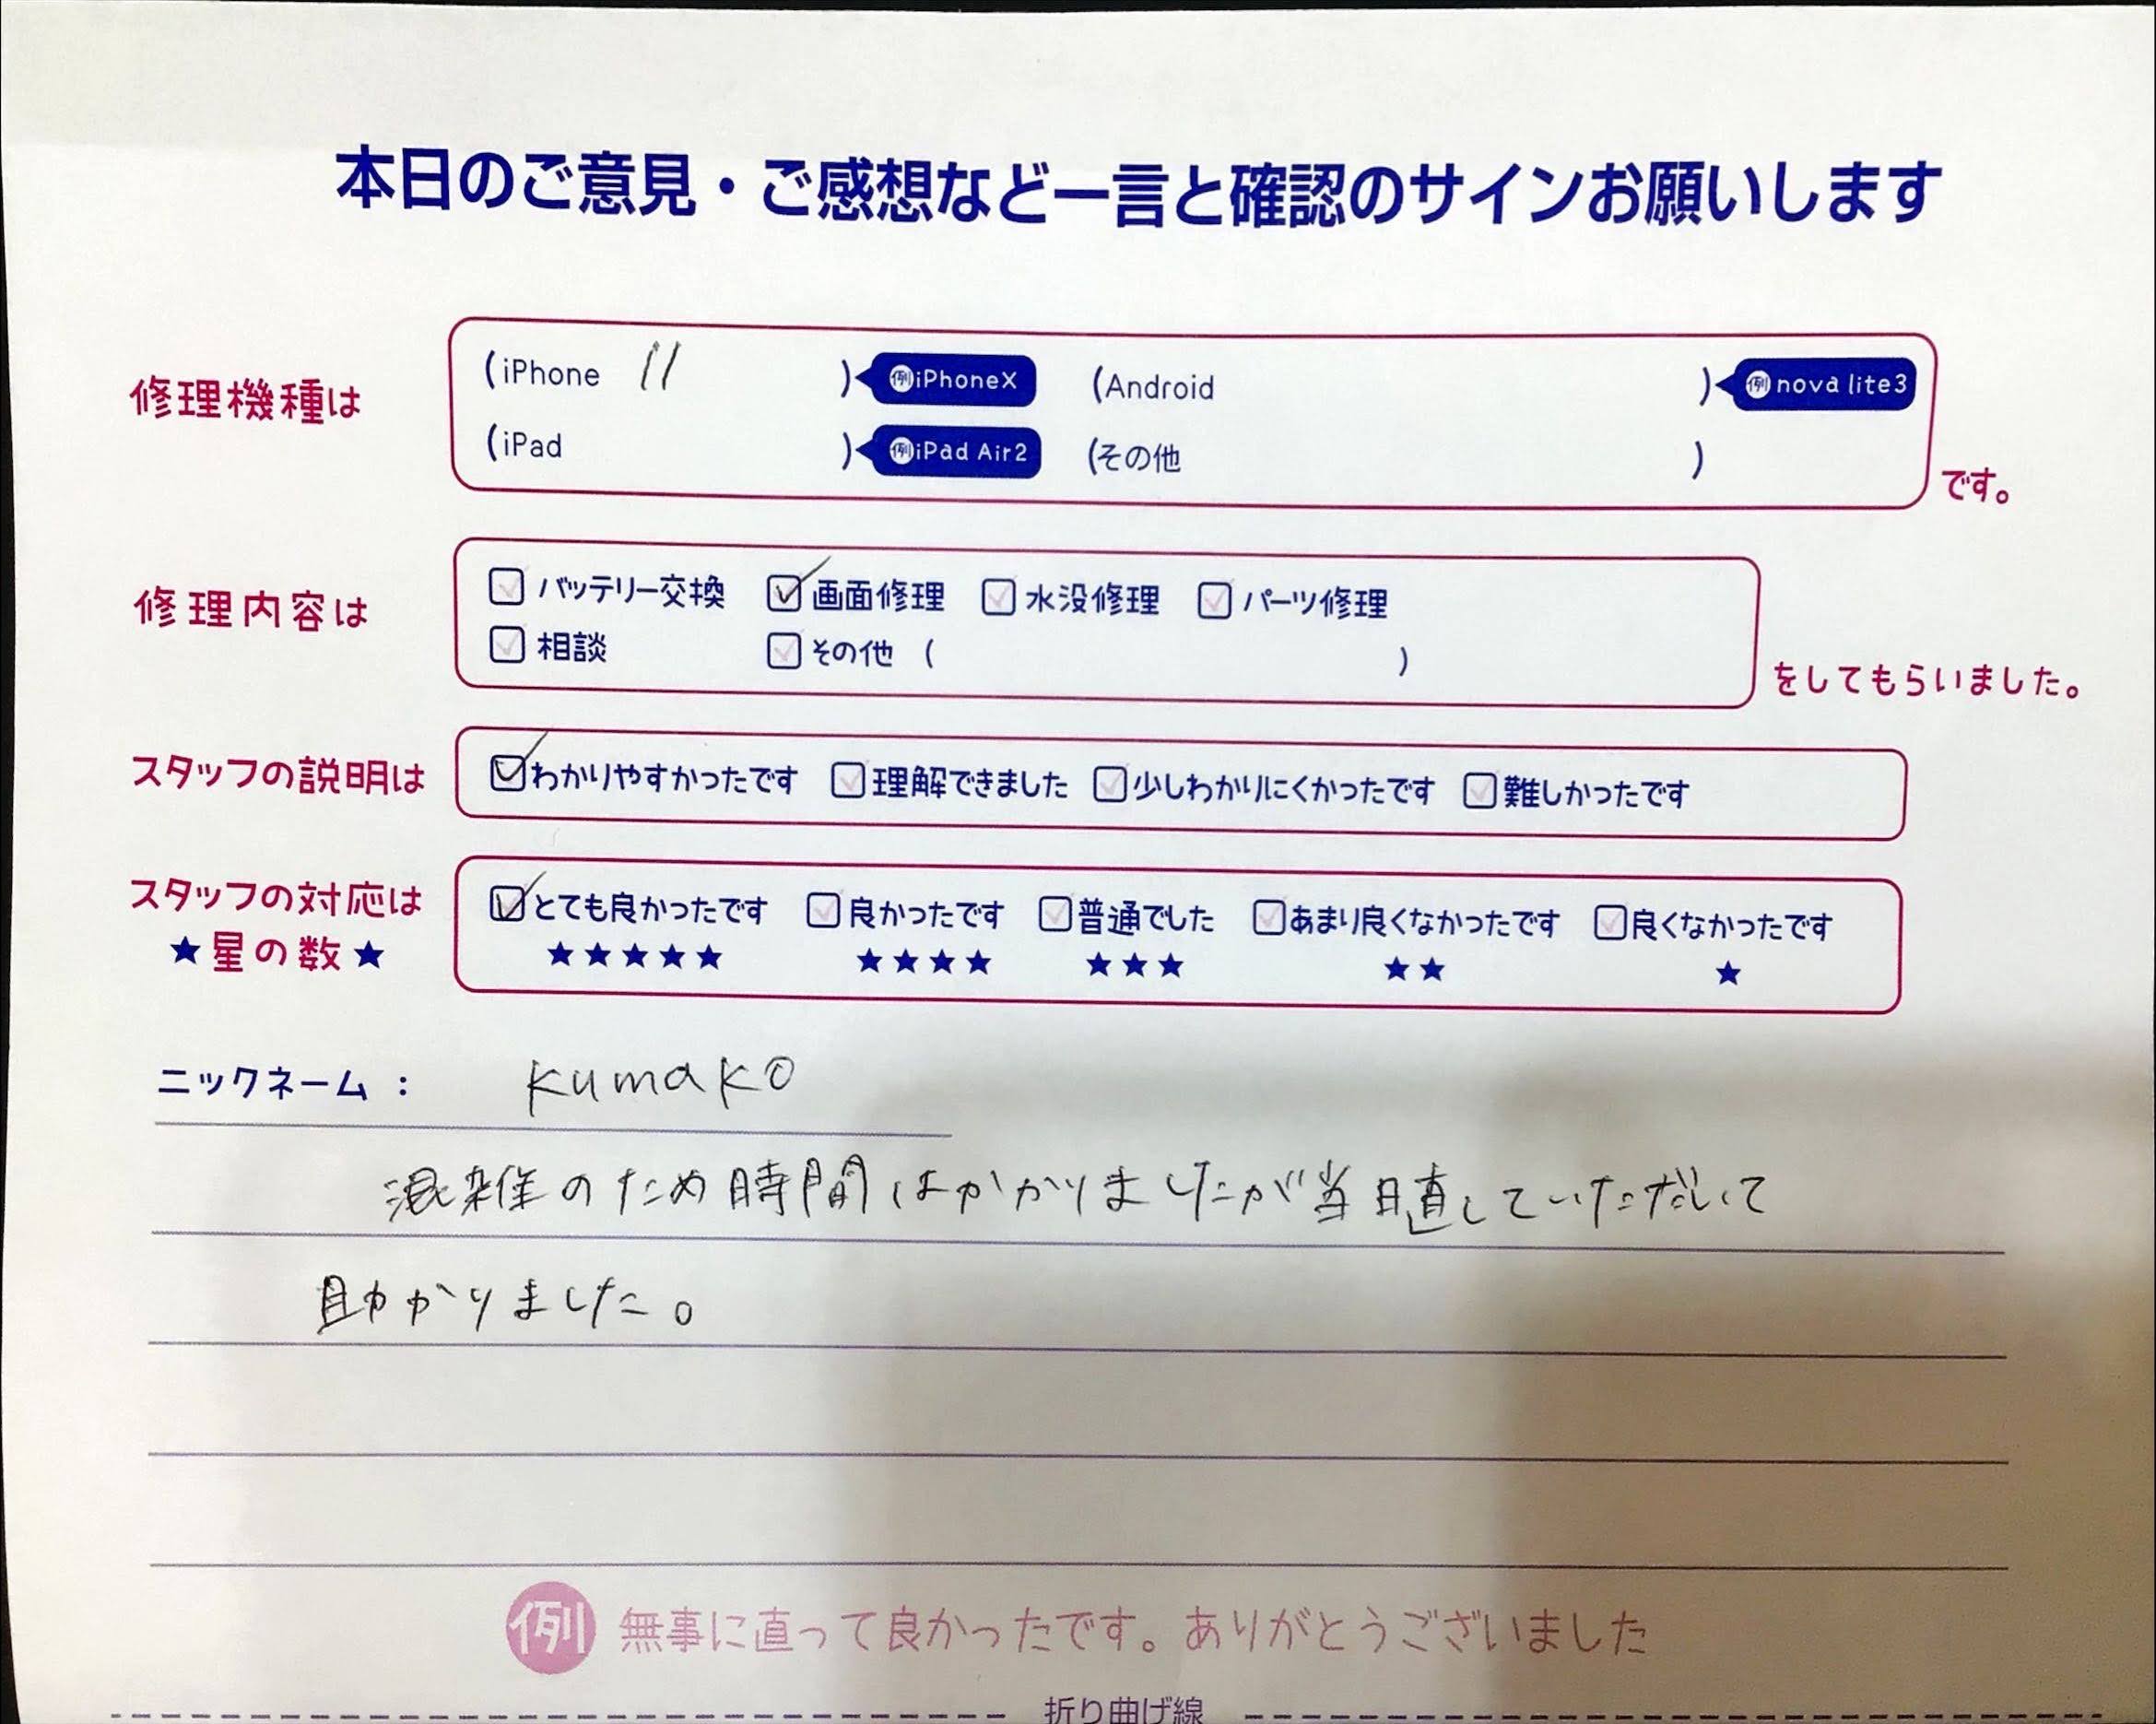 本日のご意見・ご感想など一言と確認のサインお願いします
修理機種は
(iPhone 11 ) 例iPhoneX (Android ) 例nova lite3
(iPad ) 例iPad Air2 (その他 )
です。
修理内容は
バッテリー交換 画面修理 水没修理 パーツ修理
相談 その他 ( )
をしてもらいました。
スタッフの説明は
わかりやすかったです 理解できました 少しわかりにくかったです 難しかったです
スタッフの対応は
★星の数★
とても良かったです 良かったです 普通でした あまり良くなかったです 良くなかったです
★★★★★ ★★★★ ★★★ ★★ ★
ニックネーム : kumako
混雑のため時間はかかりましたが当日直していただいて
助かりました。
例 無事に直って良かったです。ありがとうございました
折り曲げ線